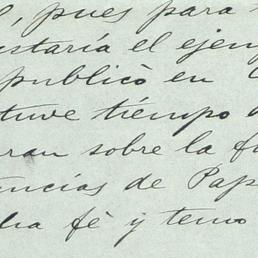 , pues para
staría el ejem
publicò en
tuve tiempo
ran sobre la fu
ncias de Pap
ha fè y temo